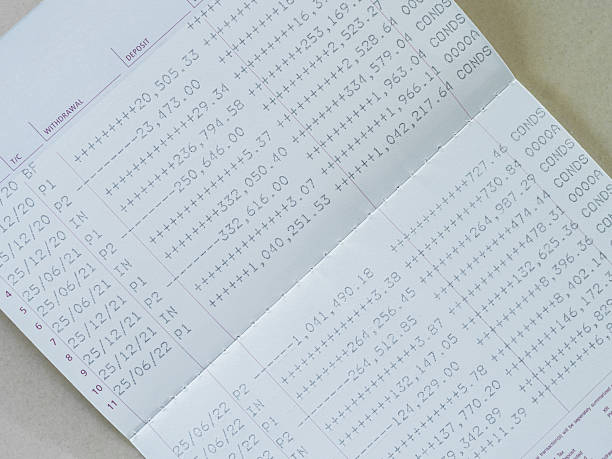 T/C WITHDRAWAL DEPOSIT
/20 BF
12/20 P1 ++++++++20,505.33
/12/20 P2 --------23,473.00
4 25/12/20 IN ++++++++29.34
5 25/06/21 P1 ++++++++236,794.58 ++++++++253,169.
6 25/06/21 P2 --------250,646.00 ++++++++2,523.27 CONDS
7 25/06/21 IN ++++++++5.37 ++++++++2,528.64 0000A
8 25/12/21 P1 ++++++++332,050.40 ++++++++334,579.04 CONDS
9 25/12/21 P2 --------332,616.00 ++++++++1,963.04 CONDS
10 25/12/21 IN ++++++++3.07 ++++++++1,966.11 0000A
11 25/06/22 P1 ++++++1,040,251.53 ++++++1,042,217.64 CONDS
25/06/22 P2 ------1,041,490.18 ++++++++727.46 CONDS
25/06/22 IN ++++++++3.38 ++++++++730.84 0000A
++++++++264,256.45 ++++++++264,987.29 CONDS
--------264,512.85 ++++++++474.44 CONDS
++++++++3.87 ++++++++478.31 0000A
++++++++132,147.05 ++++++++132,625.36 CONDS
--------124,229.00 ++++++++8,396.36 CONDS
++++++++5.78 ++++++++8,402.14
++++++++137,770.20 ++++++++146,172.
342.89 ++++++++6,82
++++++++11.39 ++++++++6,